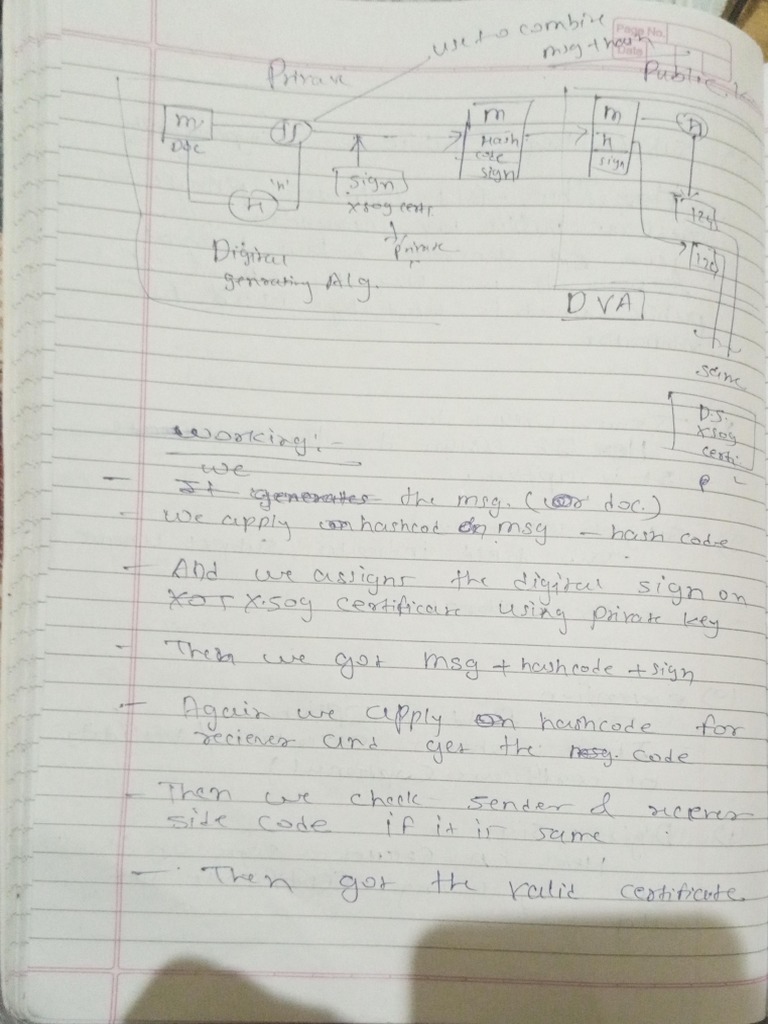 use to combine
msg + hash
Page No.
Date
Private
Public
m
Doc
||
h
"h"
sign
X509 certi.
Private
m
Hash
code
sign
m
h
sign
h
129
129
same
Digital
generating Alg.
DVA
D.S.
X509
certi
Working:-
we
It generates the msg. (or doc.)
- We apply on hashcod on msg - hash code
- And we assigns the digital sign on
X05 X.509 certificate using private key
- Then we got msg + hashcode + sign
- Again we apply on hashcode for
reciever and get the msg. code
- Then we check sender & reciever
side code if it is same
- Then got the valid certificate.